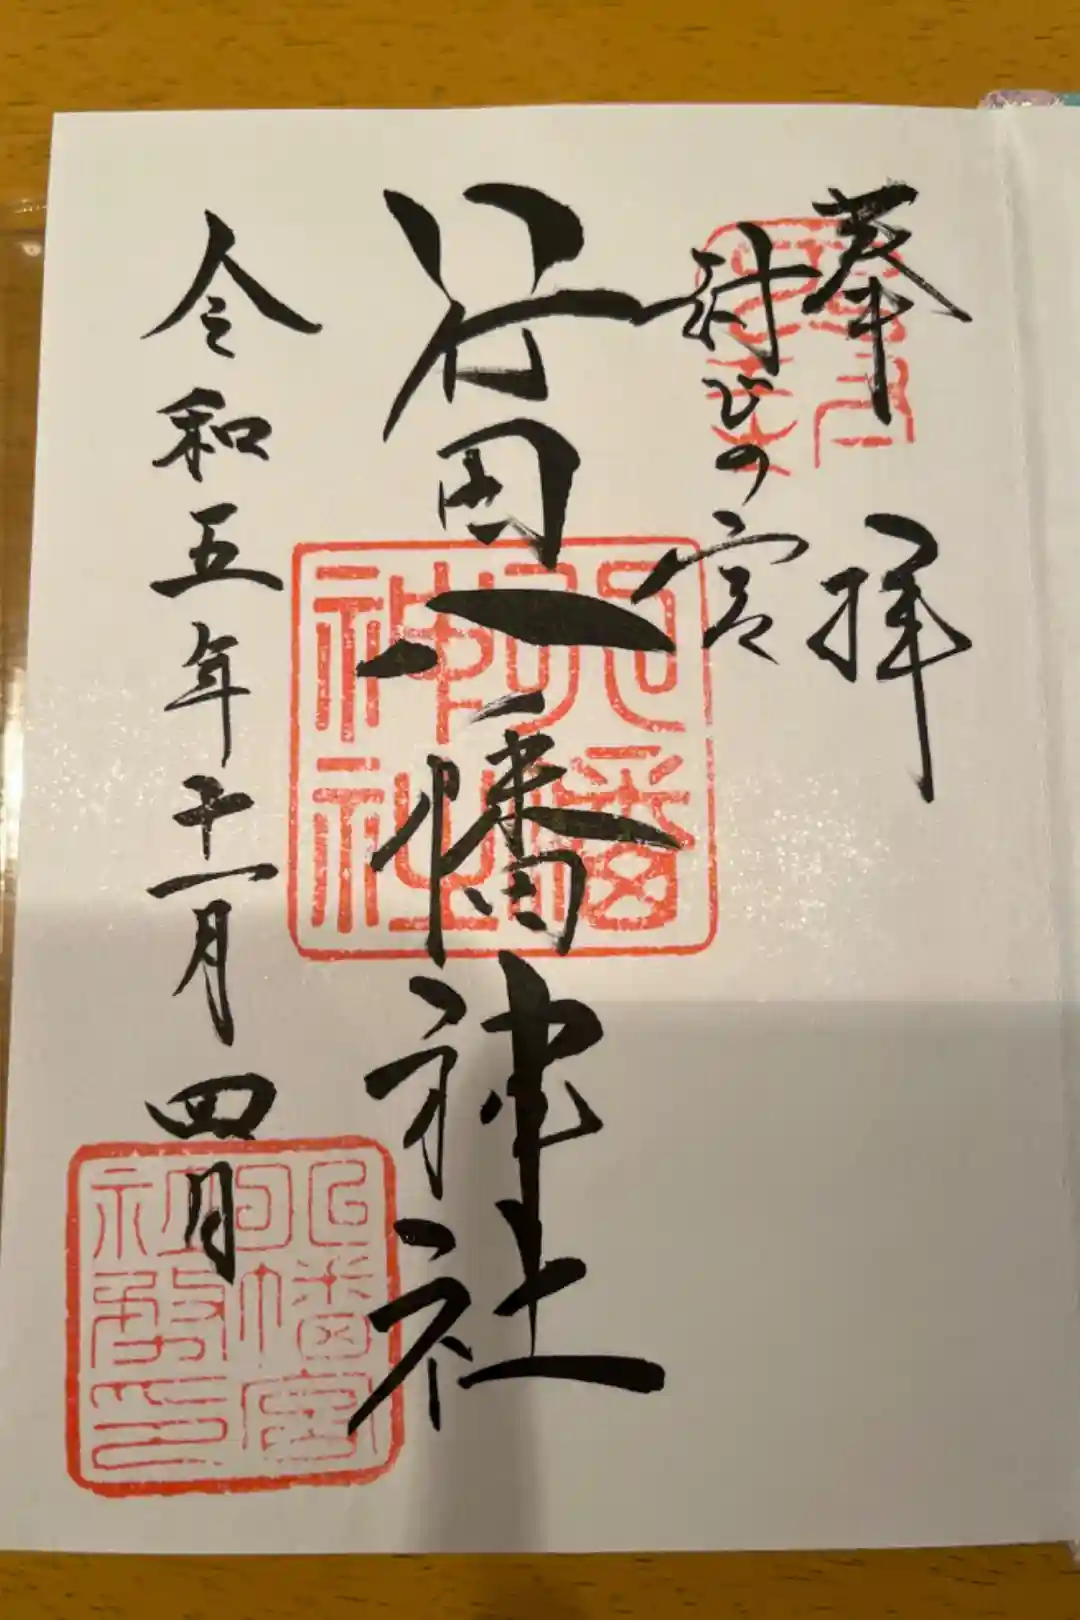 奉拝
封じの宮
行田八幡神社
八幡
神社
令和五年十一月四日
八幡宮